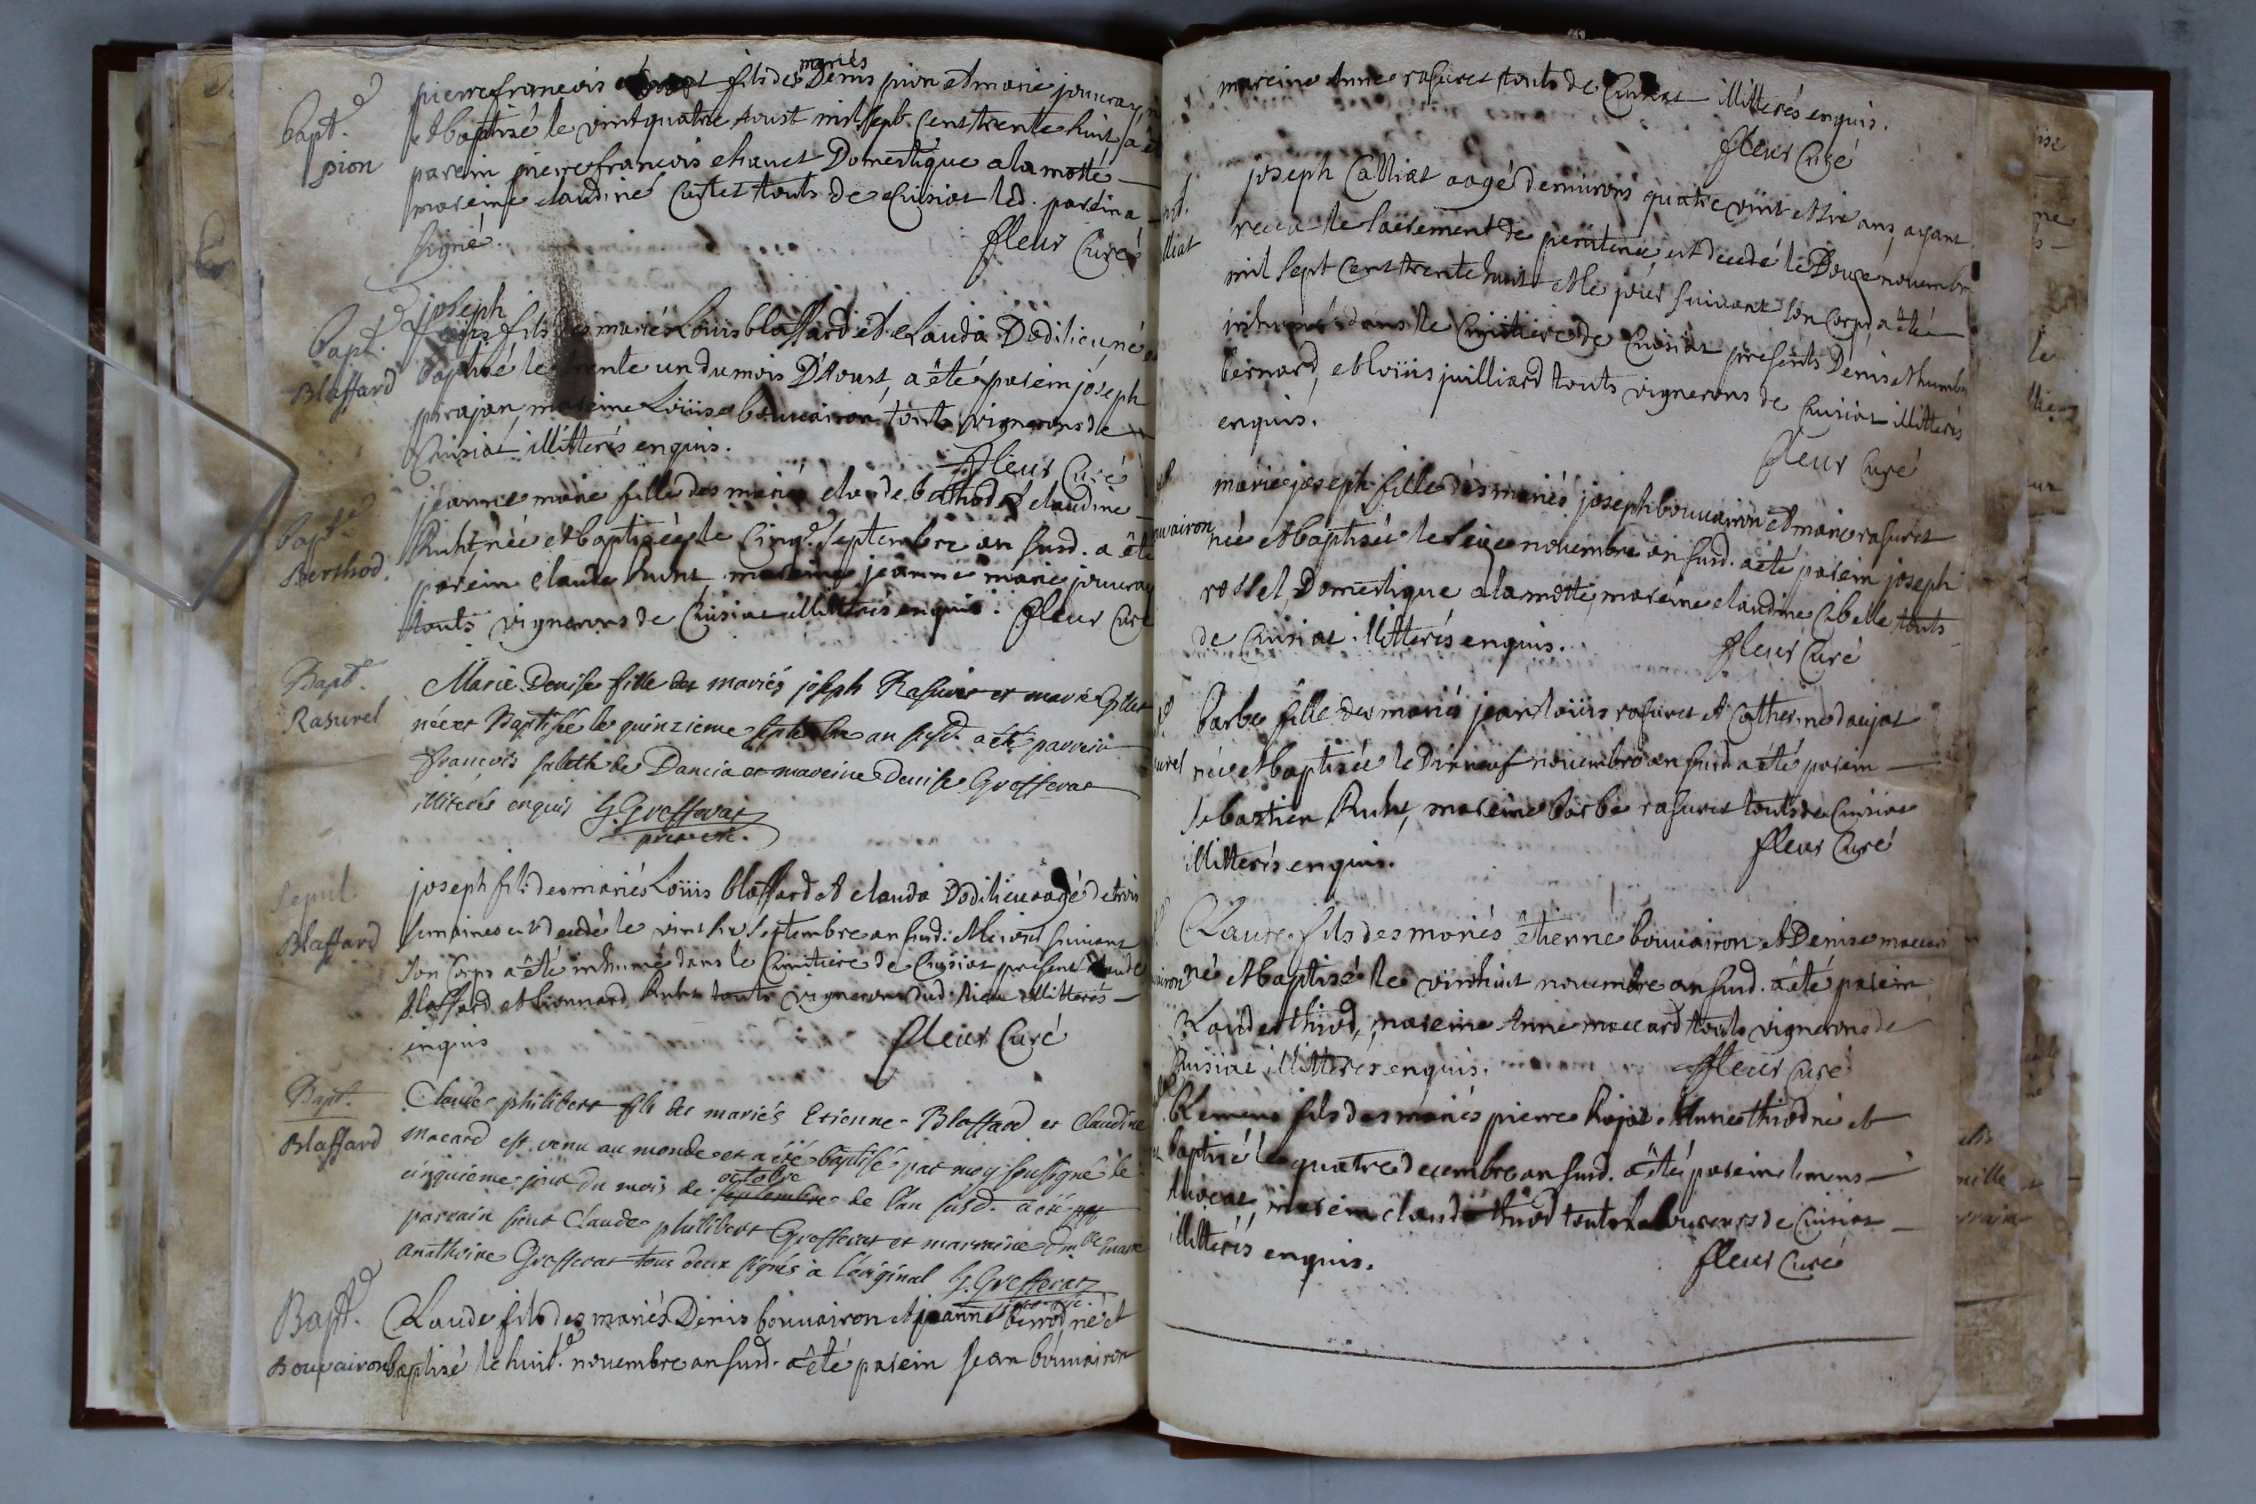 Bapt.e
pion
pierre francois fils des mariés Denis pion et marie jouuray n
et baptisé le vint quatre Aoust mil sept cent trente huit, a ét
parein pierre francois chanet Domestique a la motte
mareine claudine Curtet touts de Cuisiat led. parein a
signé.
fleur Curé
Bapt.e
Blaffard
joseph
fils des mariés Louis blaffard et Clauda Dodilieu, né et
baptisé le trente un du mois D'Aoust, a été parein joseph
pirajan mareine Louise bouuairon, touts vignerons de
Cuisiat illitterés enquis.
fleur Curé
Bapt.e
Berthod.
jeanne marie fille des mariés claude berthod et claudine
Ruht née et baptisée le Cinq.e Septembre an susd. a été
parein claude Ruht mareine jeanne marie jouuray
touts vignerons de Cuisiat illitterés enquis. fleur Curé
Bapt.e
Rasurel
Marie Denise fille des mariés joseph Rasurel et marie Gillet
née et Baptisée le quinzieme septembre an susd. a été parrein
françois de Dancia et mareine Denise Greffera
illiterés enquis G. Grefferat
Sepul.
Blaffard
joseph fils des mariés Louis blaffard et clauda Dodilieu aagé de trois
semaines est decedé le vint six septembre an susd. et le jour suivant
son Corps a été inhumé dans le Cimitiere de Cuisiat present claude
blaffard et lionnard Ruht touts vignerons dud. lieu illitterés
enquis
fleur Curé
Bapt.
Blaffard
Claude philibert fils des mariés Etienne Blaffard et Claudine
macard est venu au monde et a été baptisé par moy soussigné le
cinquieme jour du mois de septembre octobre de l'an susd. a été
parrain sieur Claude philibert Grefferat et marraine dm.lle marie
anathoire Grefferat tous deux signés a l'original G. Grefferat
Bapt.e
Bouvairon
Claude fils des mariés Denis bouuairon et jeanne berrod né et
baptisé le huit.e nouembre an susd. a été parein jean bouuairon
mareine Anne rasurel touts de Cuisiat illitterés enquis.
fleur Curé
lliat
joseph Calliat aagé d'enuirons quatre vint et six ans, ayant
receu le sacrement de penitence, est decedé le Douze nouembre
mil sept cent trente huit et le jour suivant son Corps a été
inhumé dans le Cimitiere de Cuisiat presents Denis et humbe
bernard, et loüis juilliard touts vignerons de Cuisiat illitterés
enquis.
fleur Curé
uvairon
marie joseph fille des mariés joseph bouuairon et marie rasurel
née et baptisée le seize nouembre an susd. a été parein joseph
rosset Domestique a la motte, mareine claudine Cibelle touts
de Cuisiat illitterés enquis.
fleur Curé
urel
barbe fille des mariés jean loüis rasurel et Catherine daujat
née et baptisée le Dixneuf nouembre an susd. a été parein
sebastien Ruht, mareine barbe rasurel touts de Cuisiat
illitterés enquis.
fleur Curé
airon
Claude fils des mariés étienne bouuairon et Denise maccard
né et baptisé le vint huit nouembre an susd. a été parein
Claude thiod, mareine Anne maccard touts vignerons de
Cuisiat illitterés enquis.
fleur Curé
Clemens fils des mariés pierre hujat et Anne thiod né et
baptisé le quatre decembre an susd. a été parein clemens
mareine clauda thiod touts laboureurs de Cuisiat
illitterés enquis.
fleur Curé